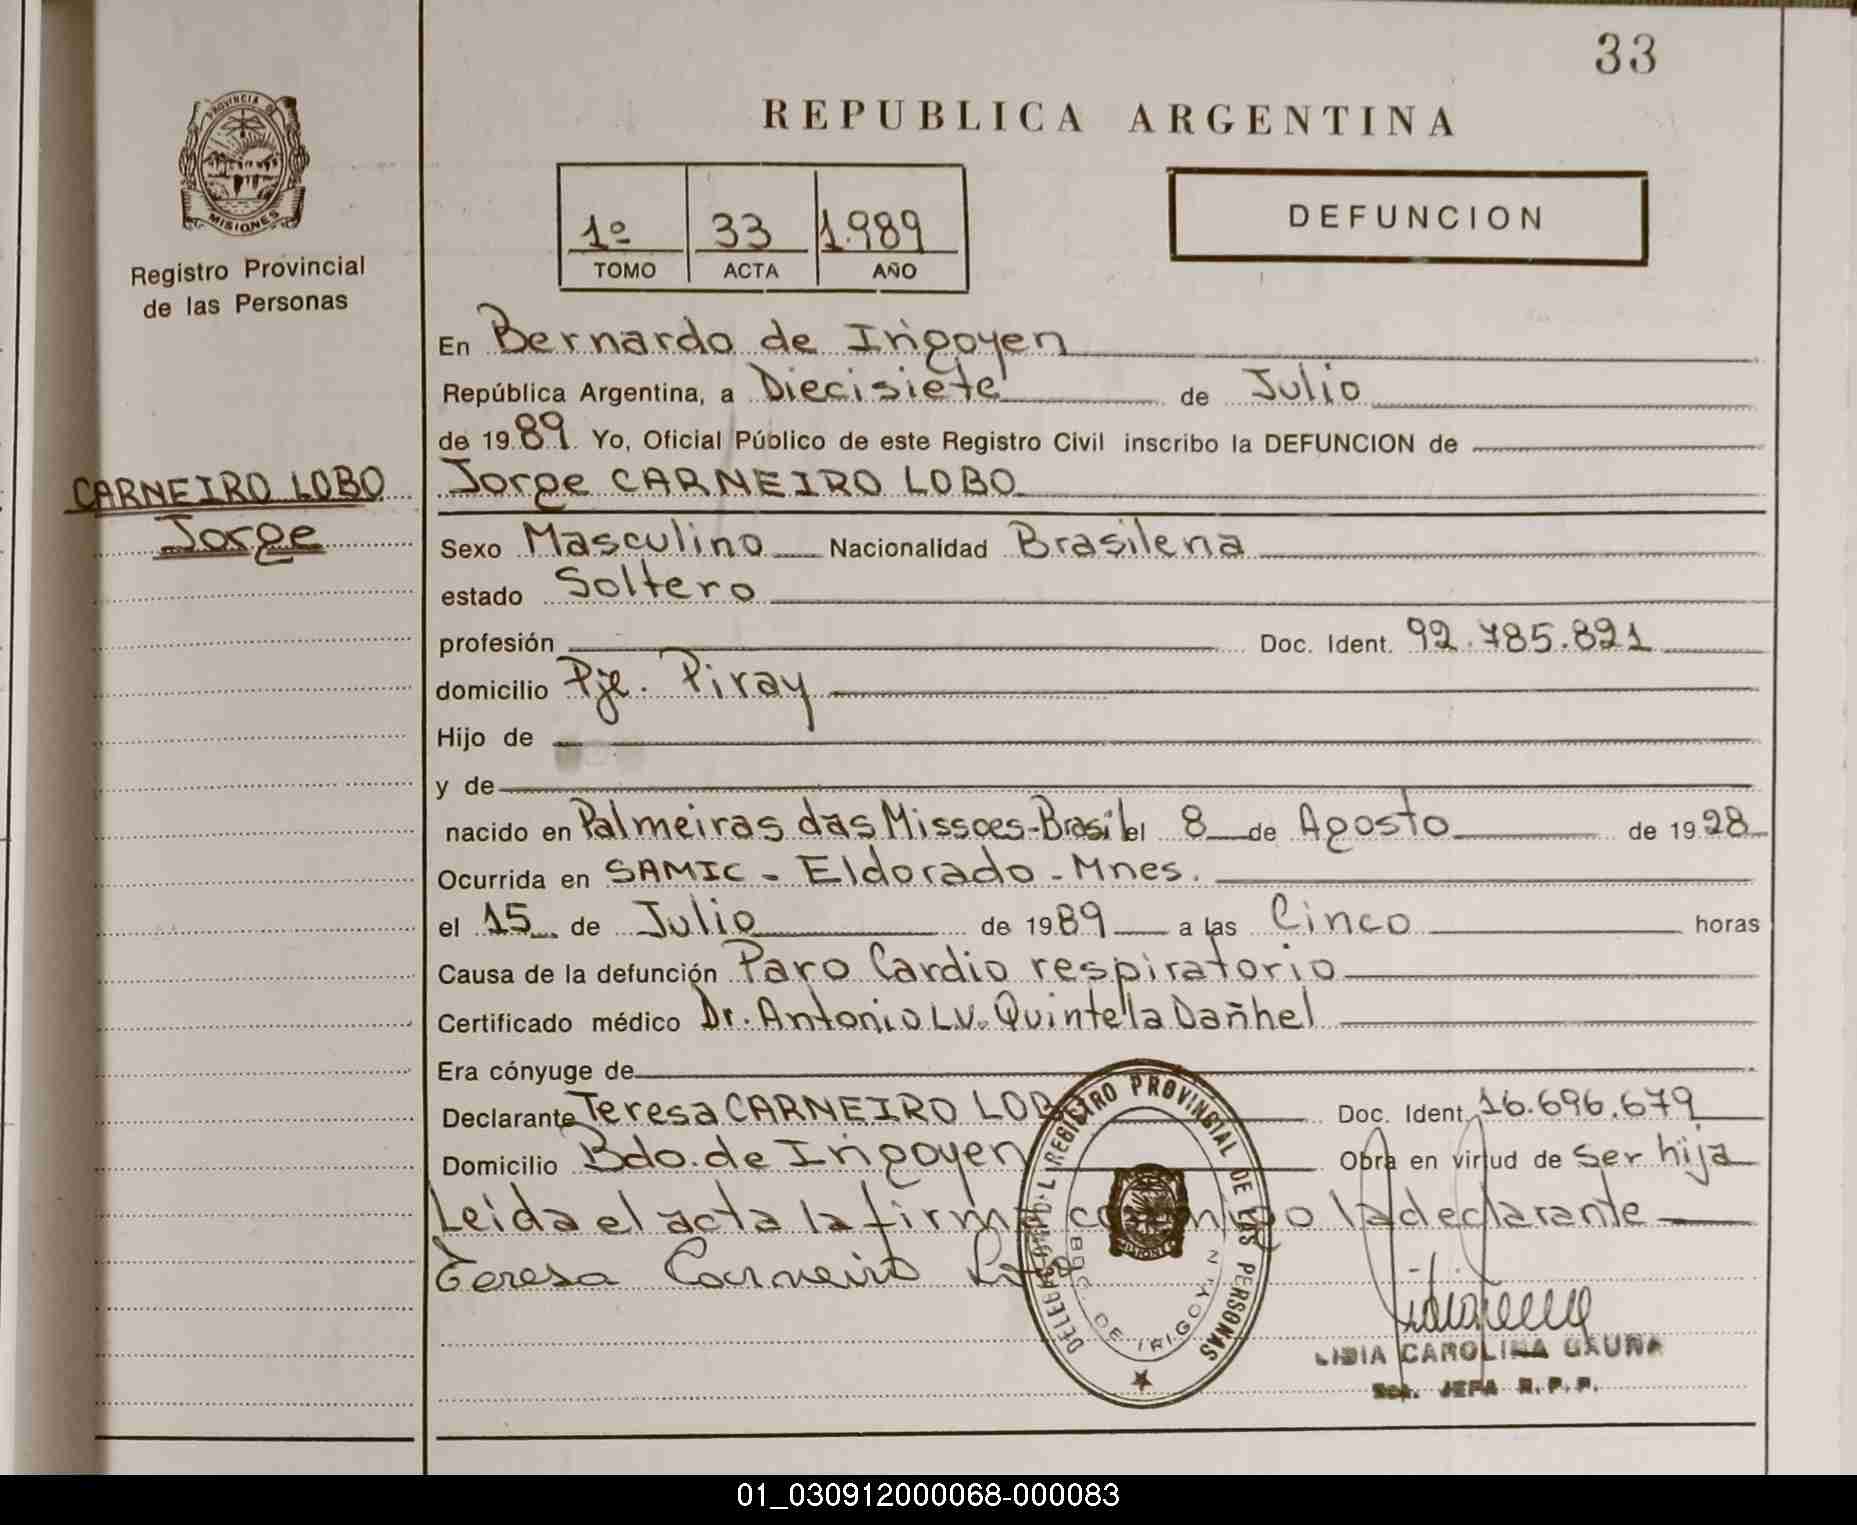 33
REPUBLICA ARGENTINA
PROVINCIA DE
MISIONES
Registro Provincial
de las Personas
1º 33 1.989
TOMO ACTA AÑO
DEFUNCION
En Bernardo de Irigoyen
República Argentina, a Diecisiete de Julio
de 1989 Yo, Oficial Público de este Registro Civil inscribo la DEFUNCION de
CARNEIRO LOBO
Jorge
Jorge CARNEIRO LOBO
Sexo Masculino Nacionalidad Brasilena
estado Soltero
profesión Doc. Ident. 92.785.821
domicilio Pje. Piray
Hijo de
y de
nacido en Palmeiras das Missoes-Brasil el 8 de Agosto de 1928
Ocurrida en SAMIC - Eldorado - Mnes.
el 15 de Julio de 1989 a las Cinco horas
Causa de la defunción Paro Cardio respiratorio
Certificado médico Dr. Antonio L.V. Quintella Dañhel
Era cónyuge de
Declarante Teresa CARNEIRO LOB Doc. Ident. 16.696.679
Domicilio Bdo. de Irigoyen Obra en virtud de ser hija
Leida el acta la firma conmigo la declarante
Teresa Carneiro Lobo
REGISTRO PROVINCIAL DE LAS PERSONAS
BDO. DE IRIGOYEN
LIDIA CAROLINA
JEFA R.P.P.
01_030912000068-000083